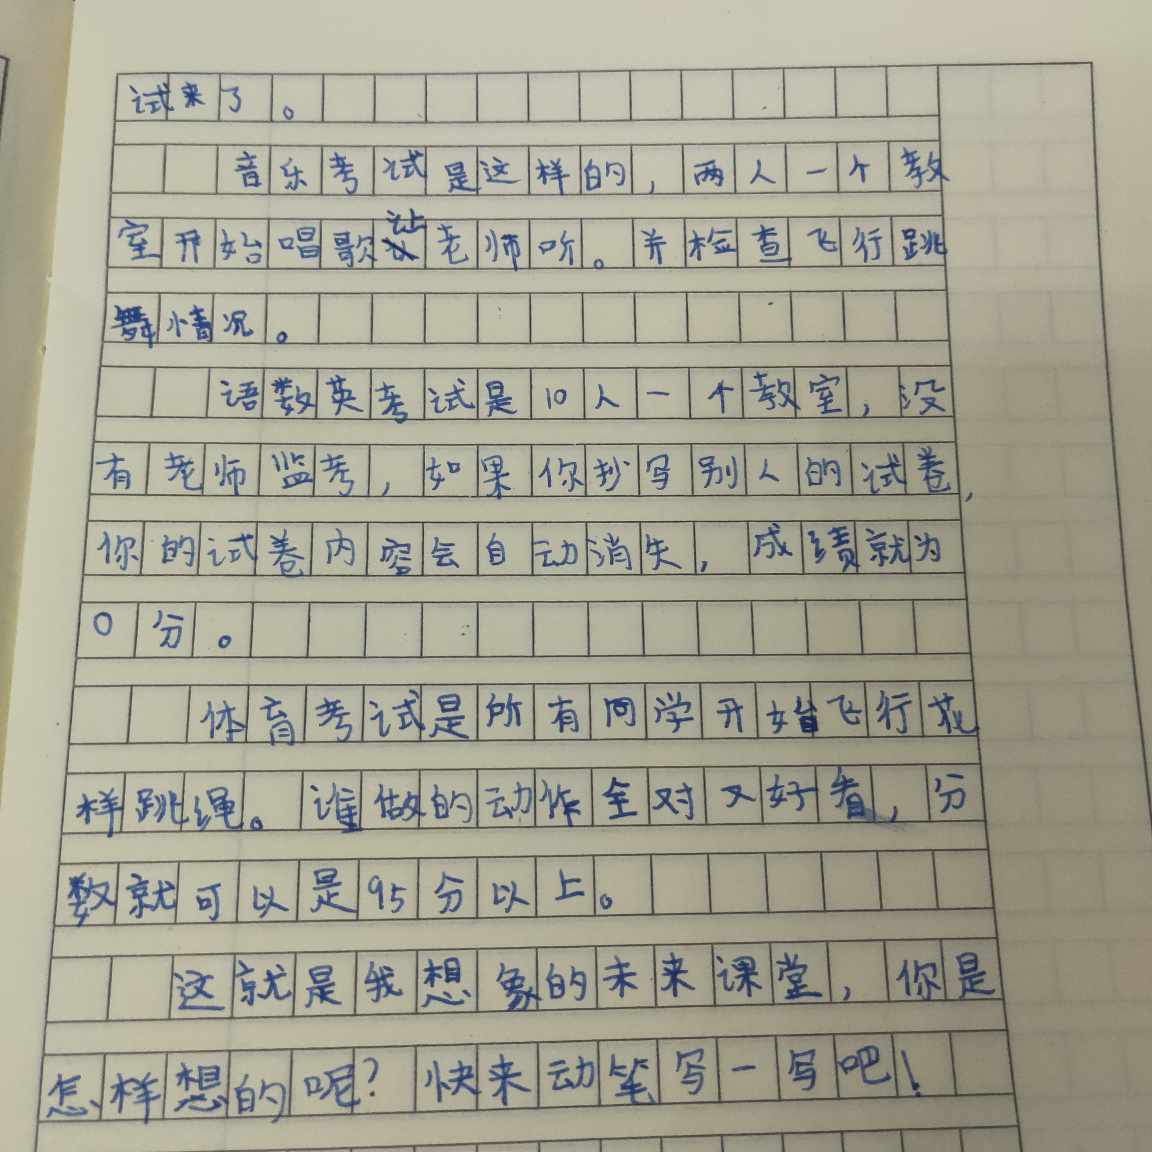 试来了。
音乐考试是这样的，两人一个教
室开始唱歌让老师听。并检查飞行跳
舞情况。
语数英考试是10人一个教室，没
有老师监考，如果你抄写别人的试卷，
你的试卷内容会自动消失，成绩就为
0分。
体育考试是所有同学开始飞行花
样跳绳。谁做的动作全对又好看，分
数就可以是95分以上。
这就是我想象的未来课堂，你是
怎样想的呢？快来动笔写一写吧！